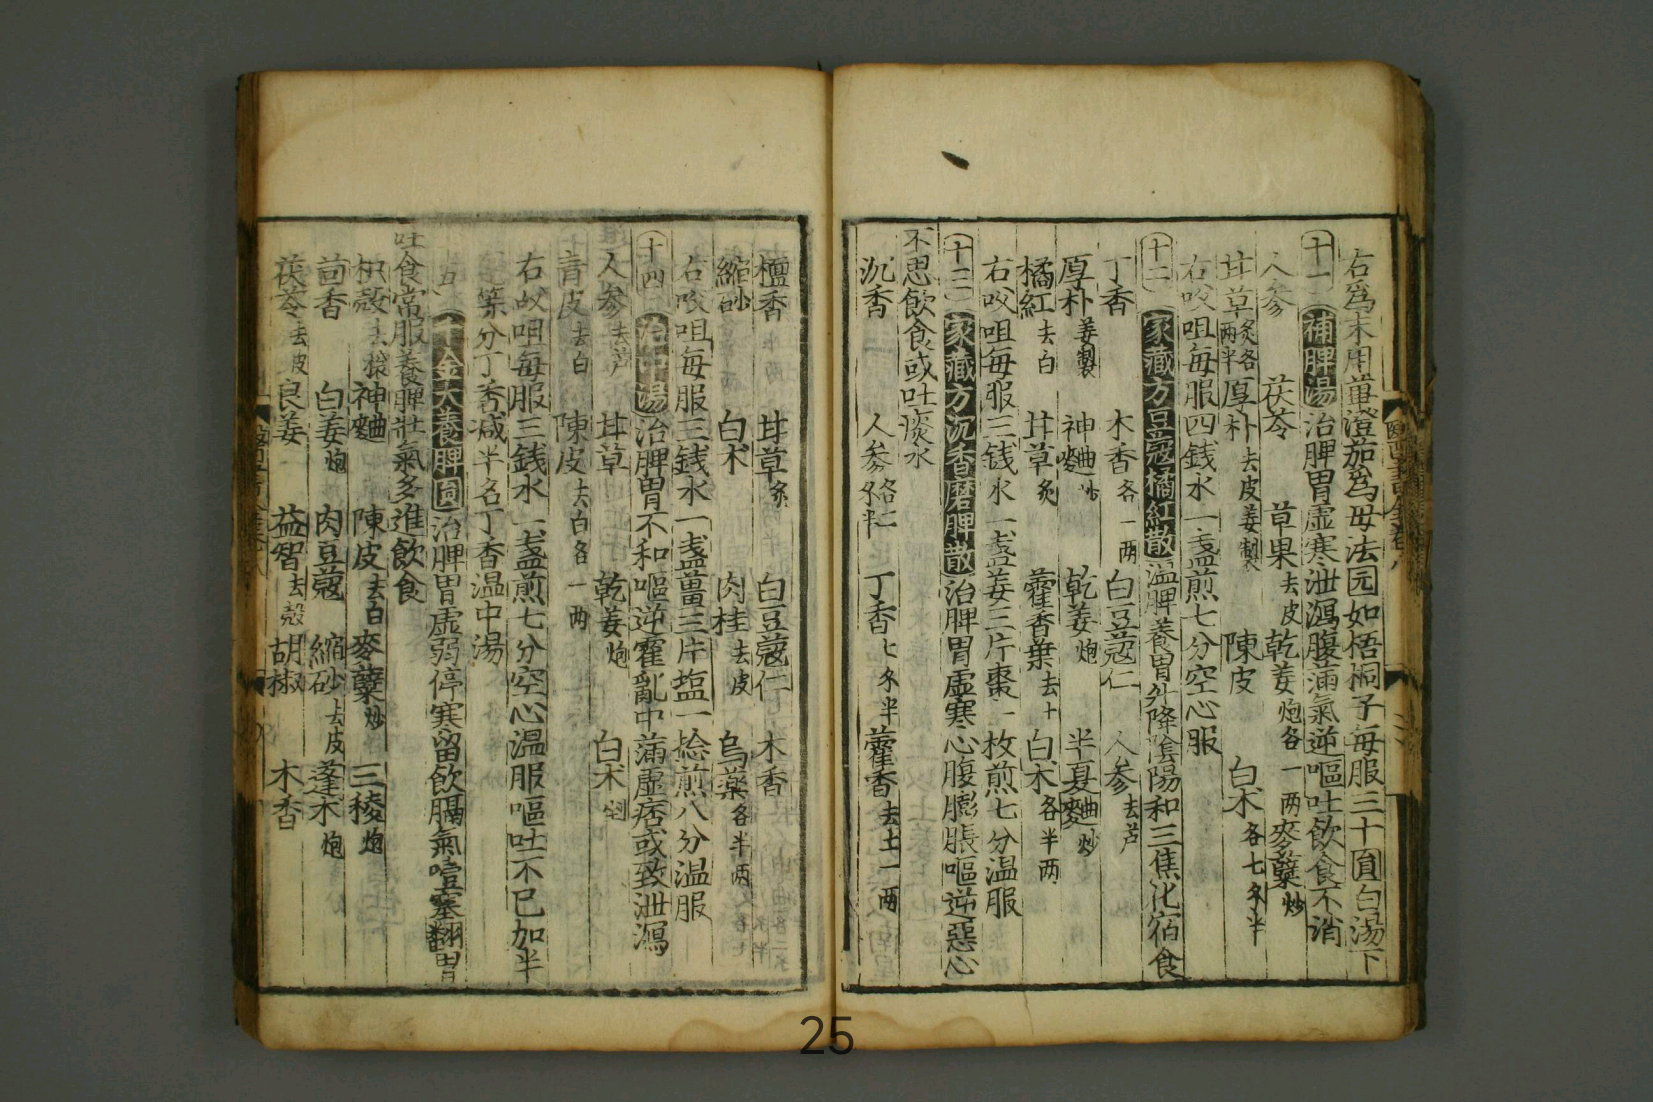 右為末用蓽澄茄為母法园如梧桐子每服三十圓白湯下
十一 補脾湯 治脾胃虛寒泄瀉腹滿氣逆嘔吐飲食不消
人參 茯苓 草果去皮 乾姜炮各一两 麥櫱炒
甘草炙各一两半 厚朴去皮姜製 陳皮 白术各七多半
右㕮咀每服四銭水一盞煎七分空心服
十二 家藏方豆蔻橘紅散 溫脾養胃升降陰陽和三焦化宿食
丁香 木香各一两 白豆蔻仁 人參去芦
厚朴姜製 神麯炒 乾姜炮 半夏麯炒
橘紅去白 甘草炙 藿香葉去土 白术各半两
右㕮咀每服三銭水一盞姜三片棗一枚煎七分溫服
十三 家藏方沉香磨脾散 治脾胃虛寒心腹膨脹嘔逆惡心
不思飲食或吐痰水
沉香 人參 丁香七多半 藿香去土一两
檀香 甘草炙 白豆蔻仁 木香
縮砂 白术 肉桂去皮 烏薬各半两
右㕮咀每服三銭水一盞薑三片塩一捻煎八分溫服
十四 治中湯 治脾胃不和嘔逆霍亂中滿虛痞或致泄瀉
人參去芦 甘草 乾姜炮 白术
青皮去白 陳皮去白各一两
右㕮咀每服三銭水一盞煎七分空心溫服嘔吐不已加半
等分丁香減半名丁香溫中湯
五 千金大養脾圓 治脾胃虛弱停寒留飲膈氣噎塞翻胃
吐食常服養脾壯氣多進飲食
枳殼去穣 神麯 陳皮去白 麥櫱炒 三稜炮
茴香 白姜炮 肉豆蔻 縮砂去皮 蓬术炮
茯苓去皮 良姜 益智去殼 胡椒 木香
25